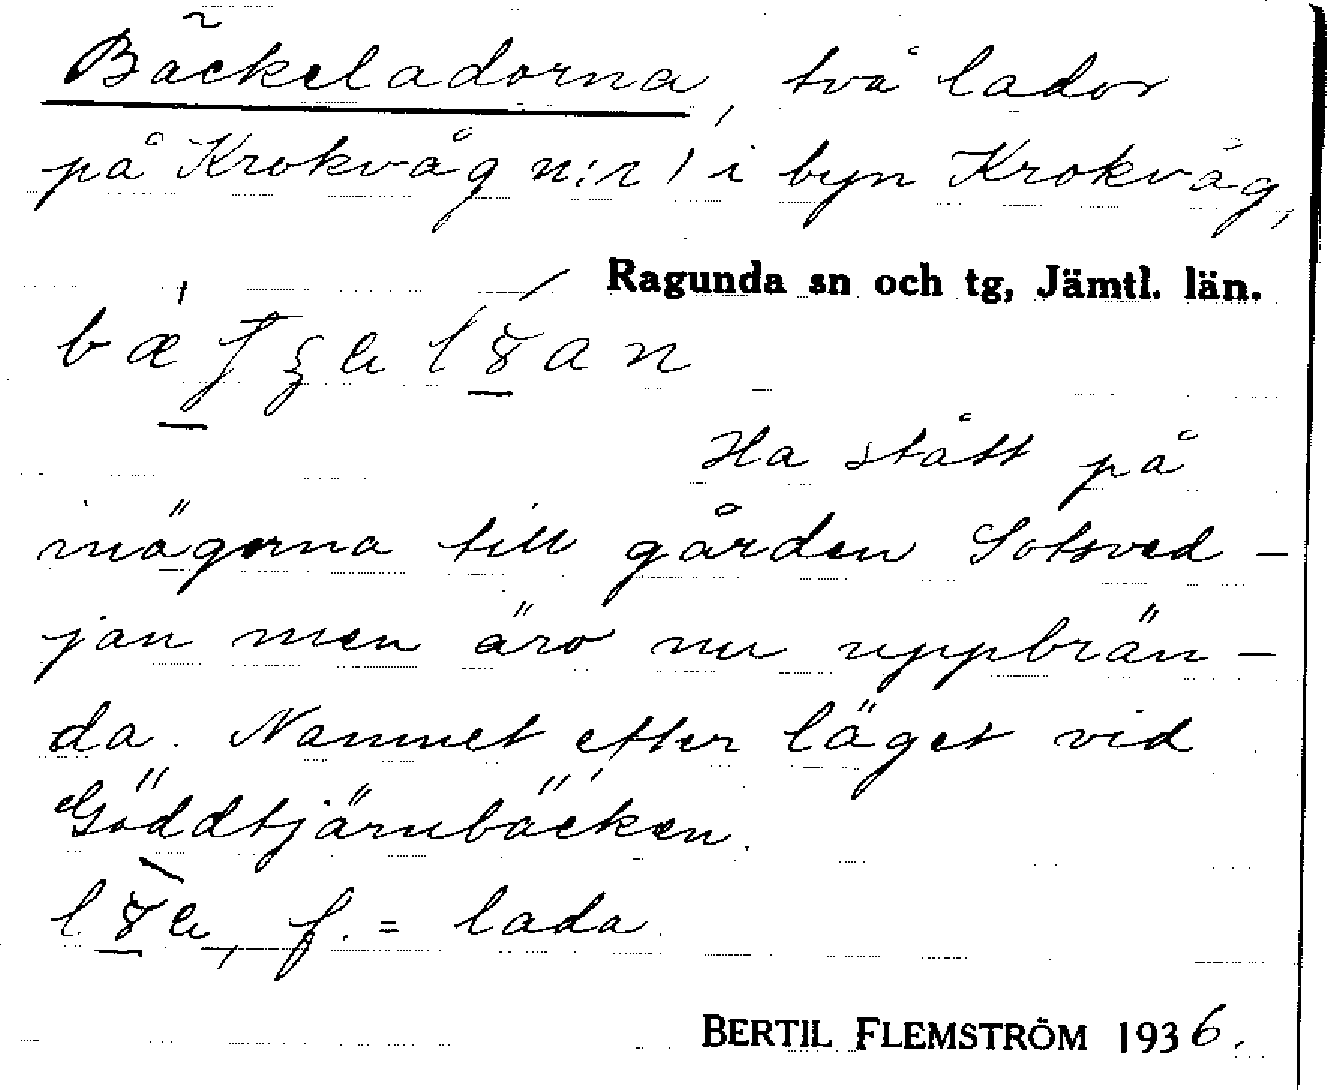 Bäckeladorna, två lador
på Krokvåg n:r 1 i byn Krokvåg,
Ragunda sn och tg, Jämtl. län.
Ha stått på
inägorna till gården Sotsved-
jan men äro nu uppbrän-
da. Namnet efter läget vid
Göddtjärnbäcken.
f. = lada
BERTIL FLEMSTRÖM 1936.